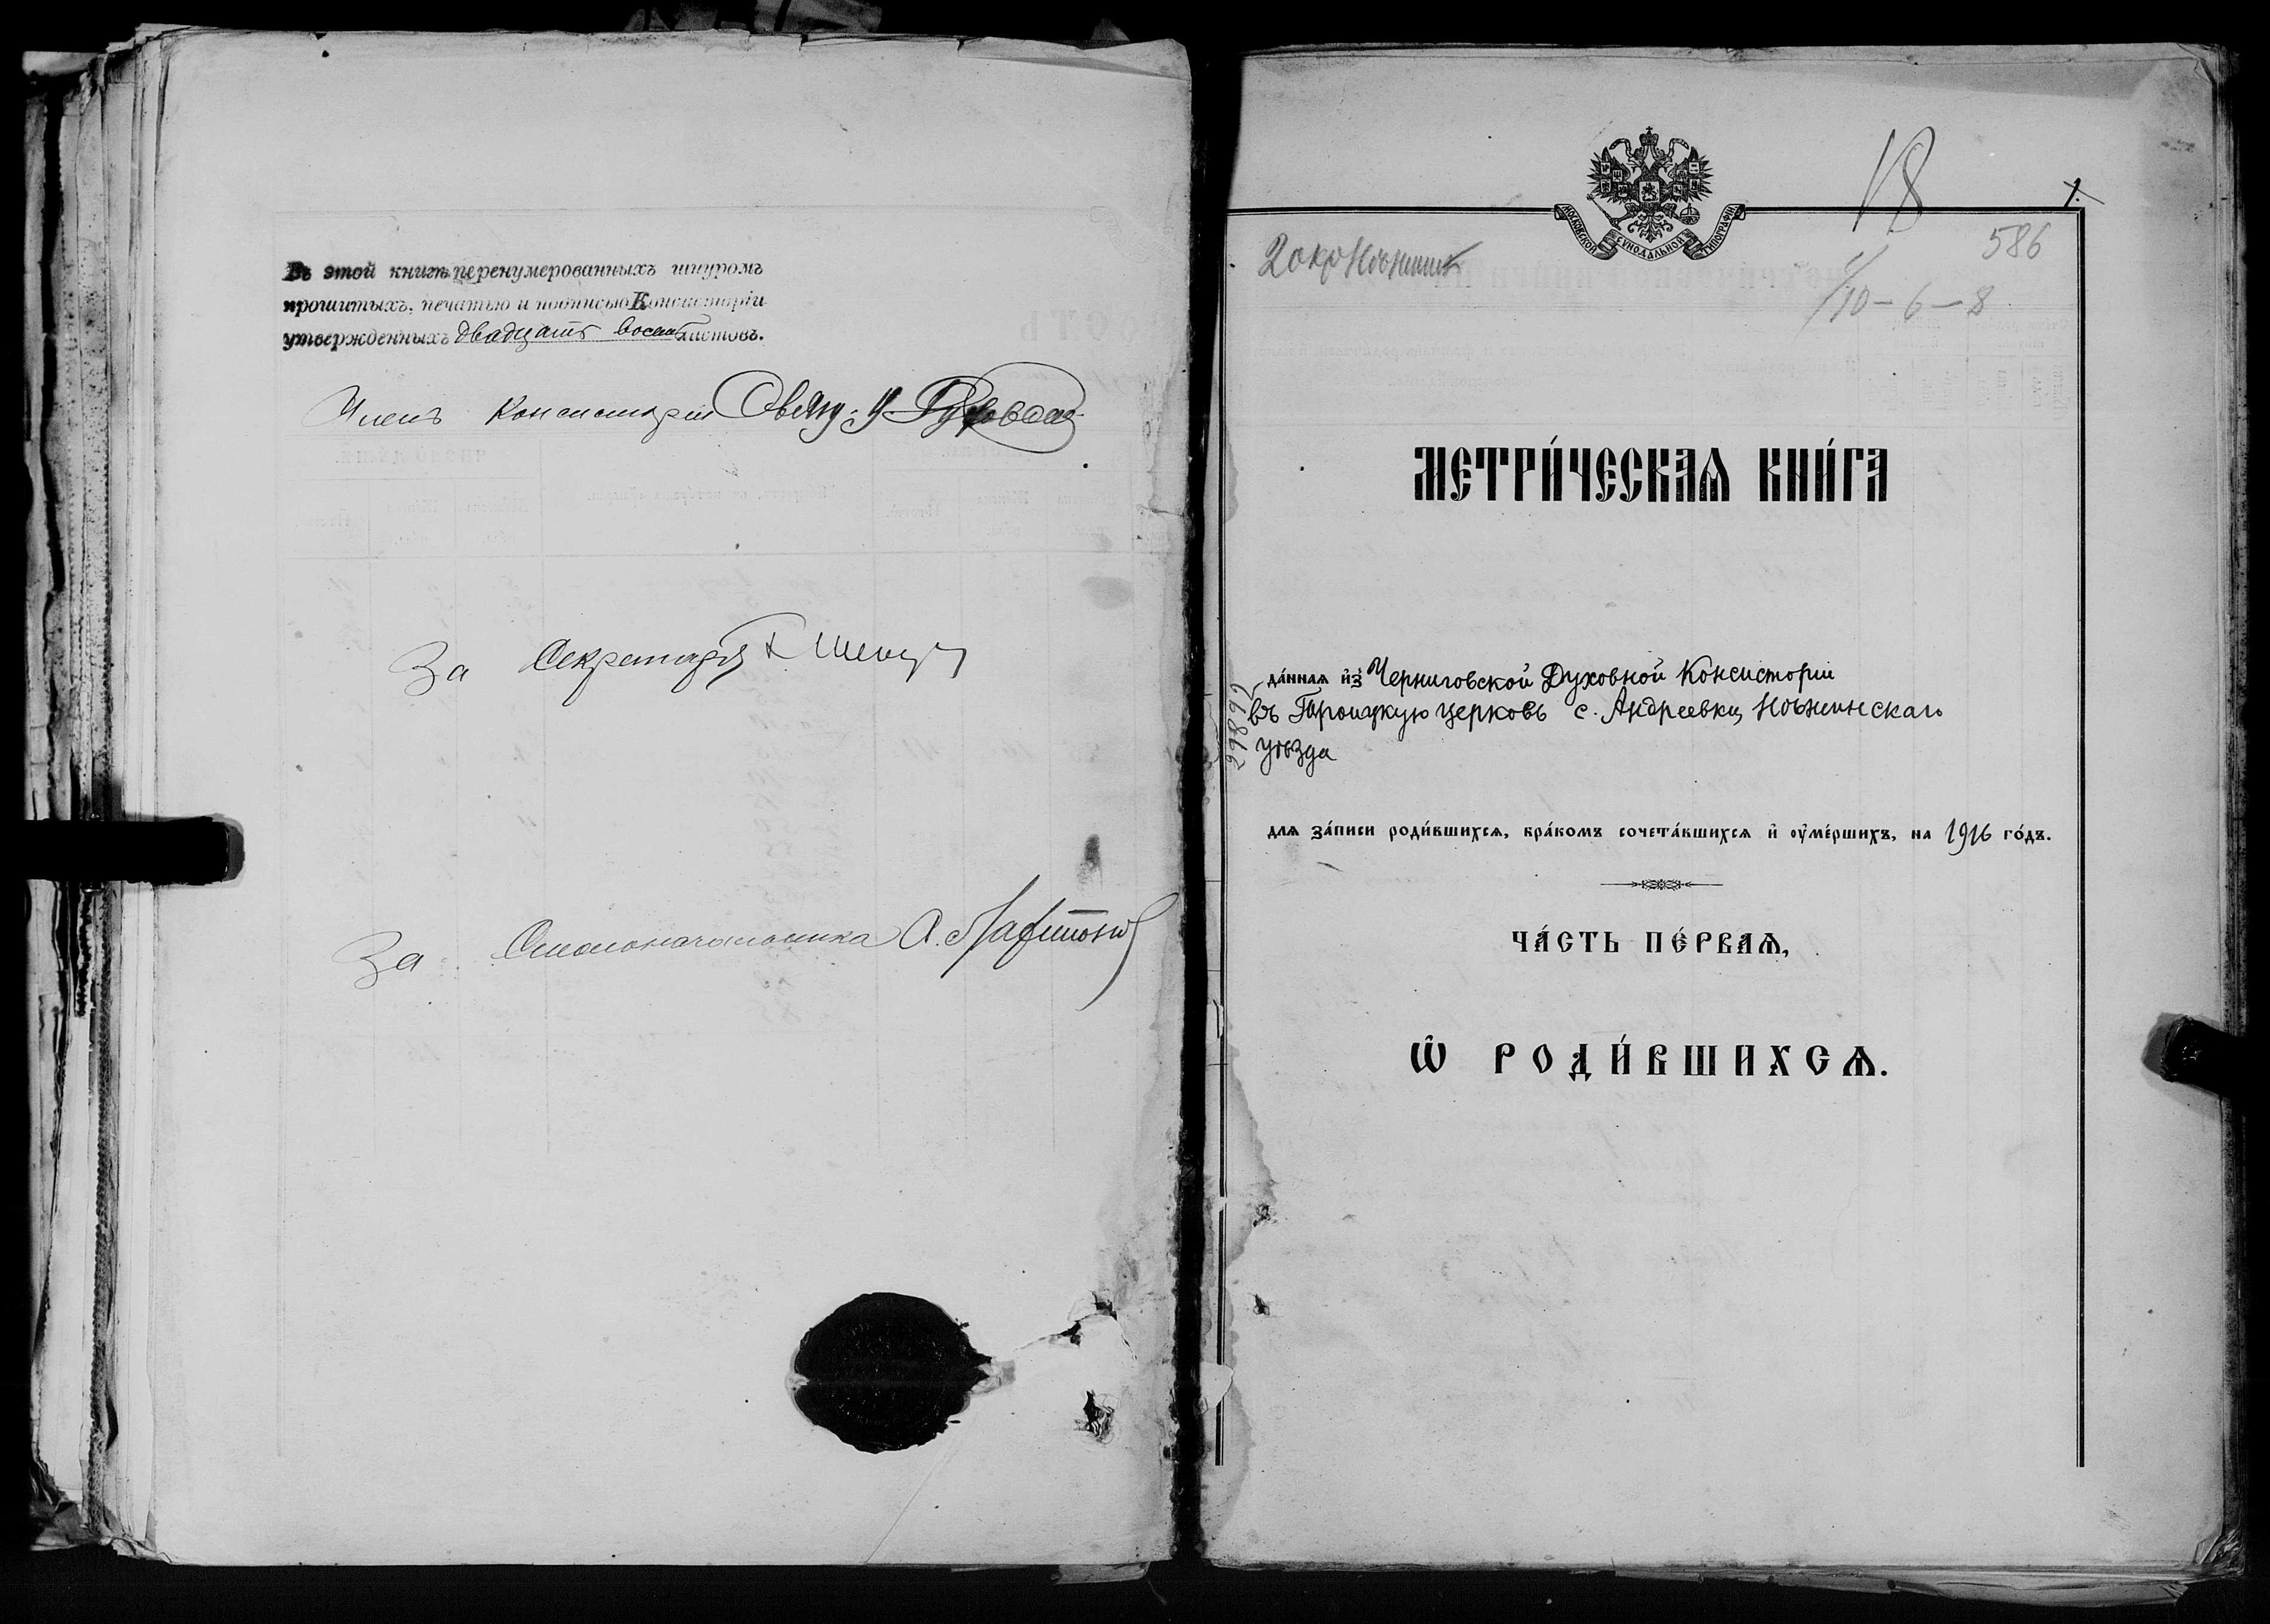 Въ этой книгѣ перенумерованныхъ шнуромъ
прошитыхъ, печатью и подписью Консисторіи
утвержденныхъ двадцать восемь листовъ.
Членъ Консисторіи Свящ.
За Секретаря
За Столоначальника А.
МОСКОВСКОЙ СѴНОДАЛЬНОЙ ТИПОГРАФІИ
18
1.
2 окр Нѣжин
586
10-6-8
МЕТРИ́ЧЕСКАѦ КНИ́ГА
да́ннаѧ и҆з̾ Черниговской Духовной Консисторіи
въ Троицкую церковь с. Андреевки, Нѣжинскаго
уѣзда
29892
длѧ за́писи роди́вшихсѧ, бра́комъ сочета́вшихсѧ и҆ оу҆ме́ршихъ, на 1916 го́дъ.
ЧА́СТЬ ПЕ́РВАѦ,
Ѽ РОДИ́ВШИХСѦ.